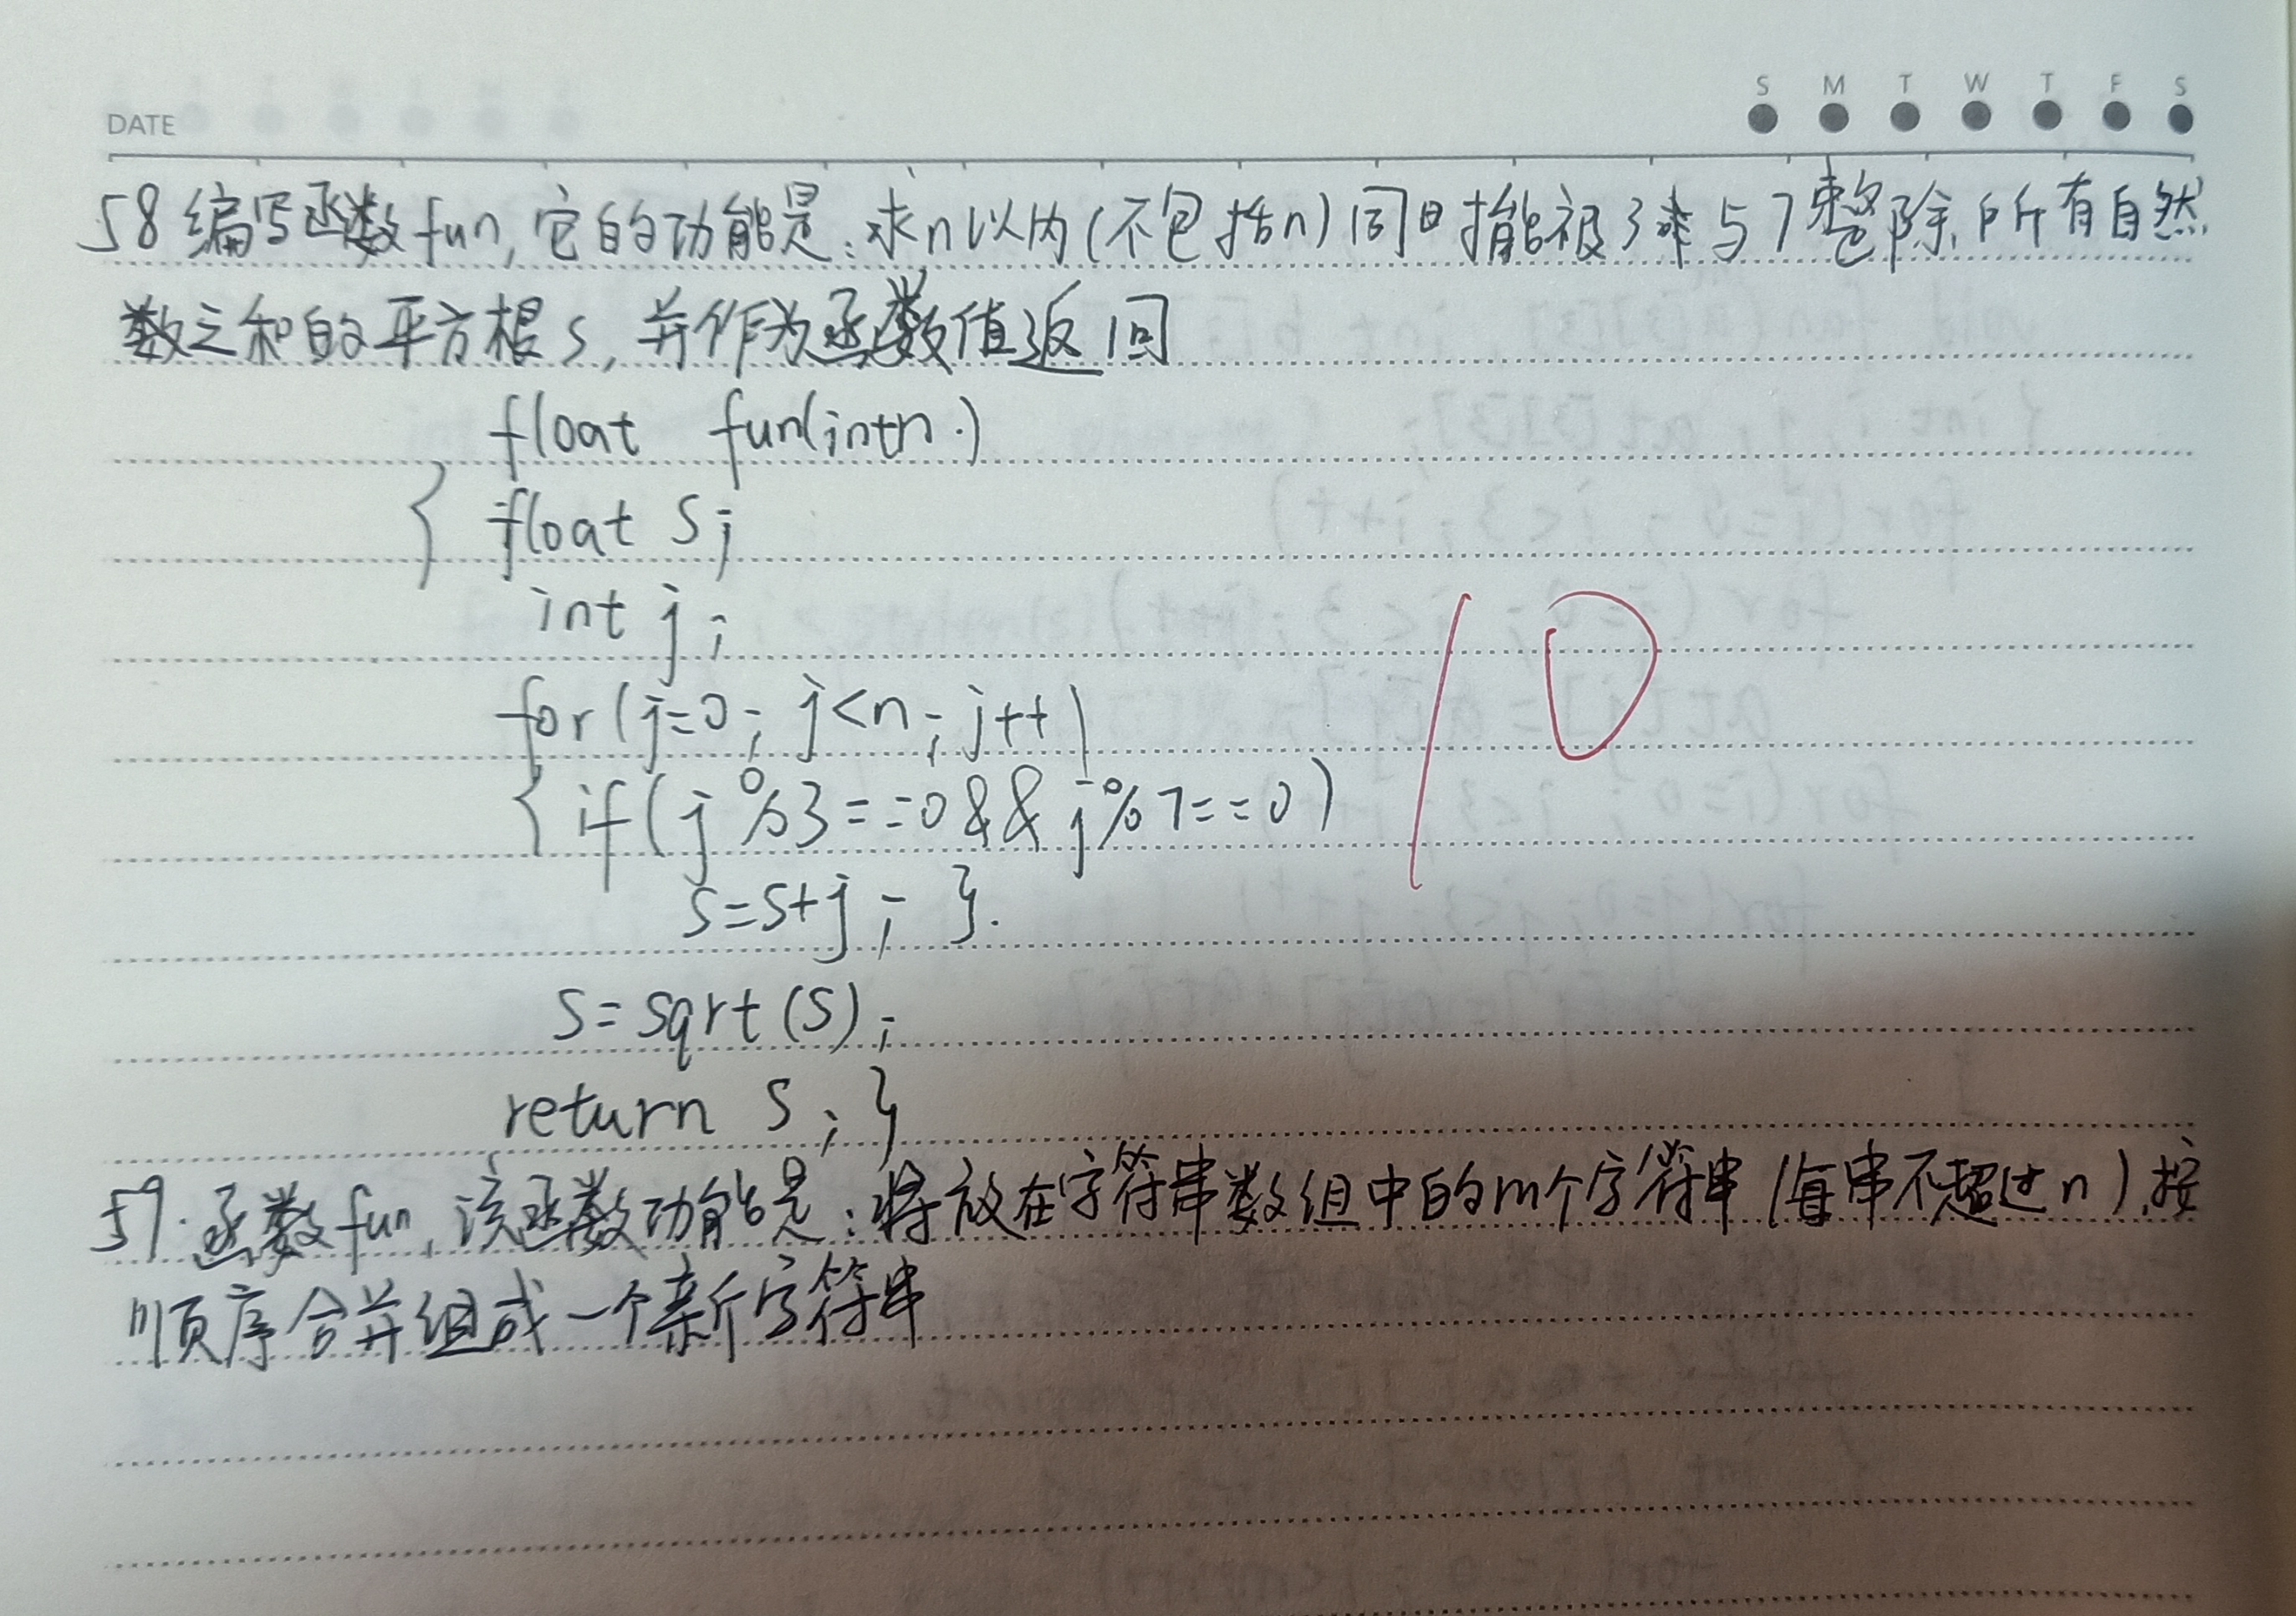 DATE
S M T W T F S
58 编写函数fun,它的功能是:求n以内(不包括n)同时能被3与7整除所有自然
数之和的平方根s,并作为函数值返回
float fun(int n.)
{ float S;
int j;
for(j=0; j<n; j++)
{ if(j%3==0&&j%7==0)
s=s+j; }.
s=sqrt(s);
return s; }
10
59.函数fun,该函数功能是:将放在字符串数组中的m个字符串(每串不超过n),按
顺序合并组成一个新字符串